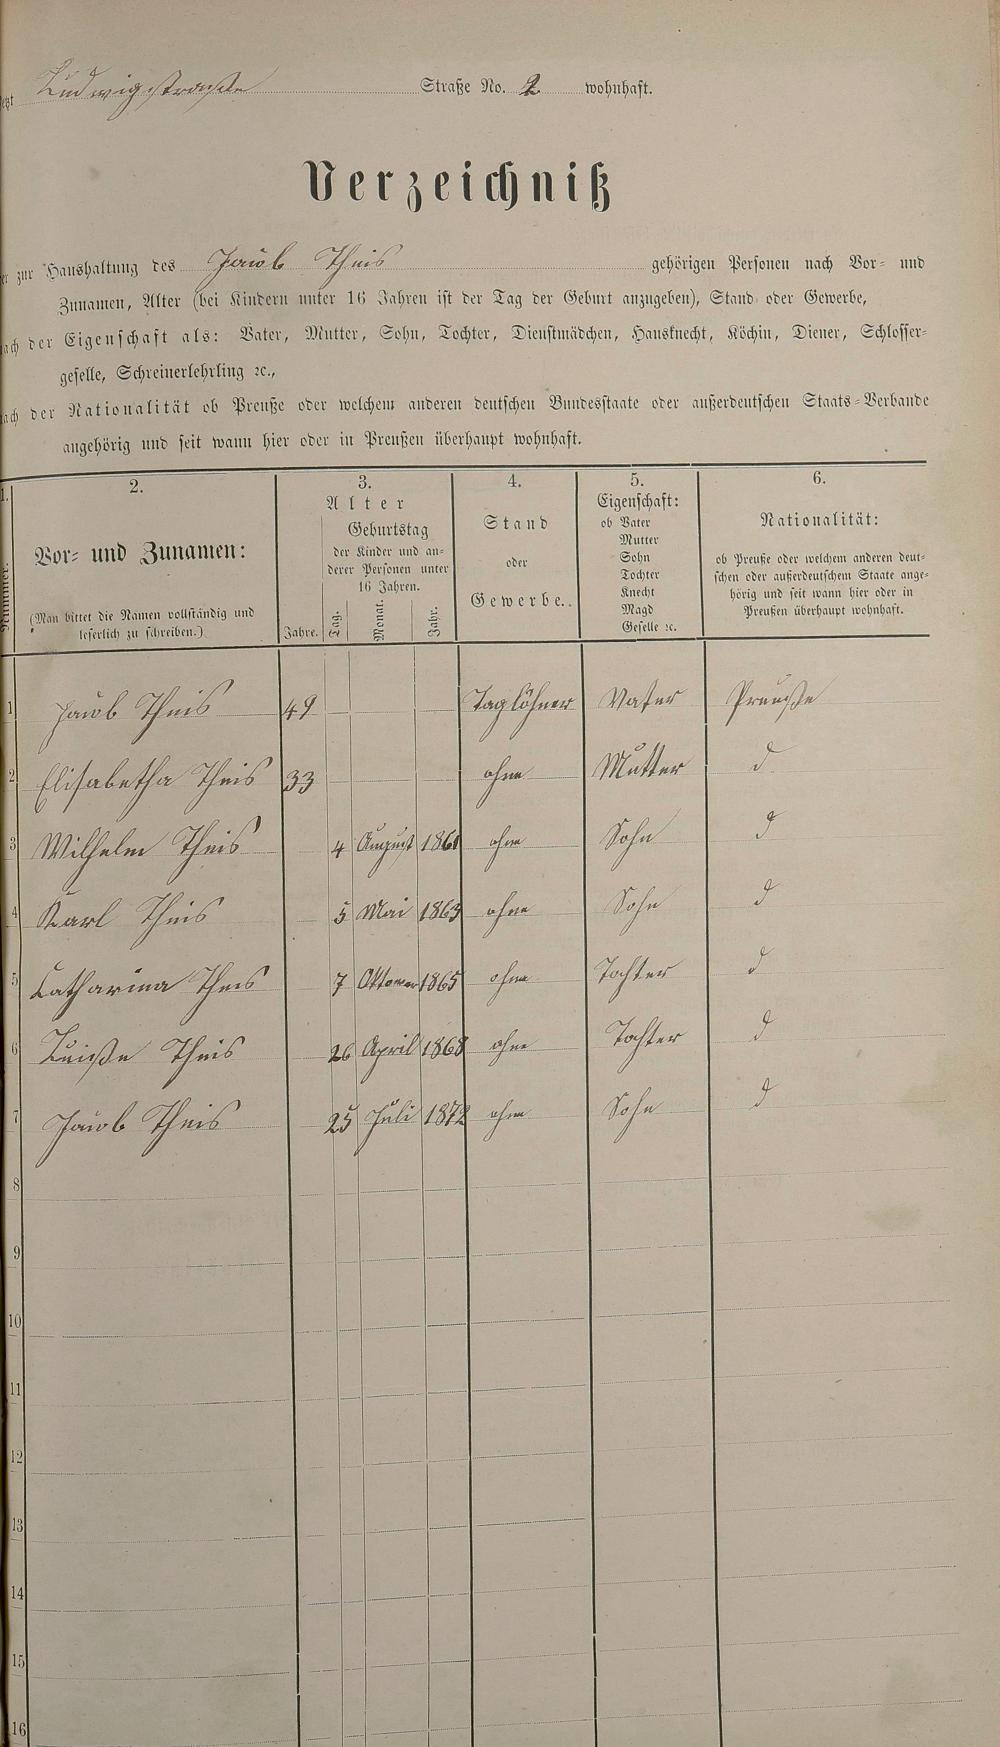 Ludwigstraße Straße No. 2 wohnhaft.
Verzeichniß
zur Haushaltung des Jacob Theis gehörigen Personen nach Vor- und
Zunamen, Alter (bei Kindern unter 16 Jahren ist der Tag der Geburt anzugeben), Stand oder Gewerbe,
nach der Eigenschaft als: Vater, Mutter, Sohn, Tochter, Dienstmädchen, Hausknecht, Köchin, Diener, Schlosser-
geselle, Schreinerlehrling ꝛc.,
nach der Nationalität ob Preuße oder welchem anderen deutschen Bundesstaate oder außerdeutschen Staats-Verbande
angehörig und seit wann hier oder in Preußen überhaupt wohnhaft.
1. 2. 3. 4. 5. 6.
Nummer.
Vor- und Zunamen:
(Man bittet die Namen vollständig und
leserlich zu schreiben.)
Alter
Geburtstag
der Kinder und an-
derer Personen unter
16 Jahren.
Jahre. Tag. Monat. Jahr.
Stand
oder
Gewerbe.
Eigenschaft:
ob Vater
Mutter
Sohn
Tochter
Knecht
Magd
Geselle ꝛc.
Nationalität:
ob Preuße oder welchem anderen deut-
schen oder außerdeutschem Staate ange-
hörig und seit wann hier oder in
Preußen überhaupt wohnhaft.
1 Jacob Theis 49 Taglöhner Vater Preuße
2 Elisabetha Theis 33 ohne Mutter d
3 Wilhelm Theis 4 August 1861 ohne Sohn d
4 Karl Theis 5 Mai 1863 ohne Sohn d
5 Catharina Theis 7 1865 ohne Tochter d
6 Luiße Theis 26 April 1868 ohne Tochter d
7 Jacob Theis 25 Juli 1872 ohne Sohn d
8
9
10
11
12
13
14
15
16